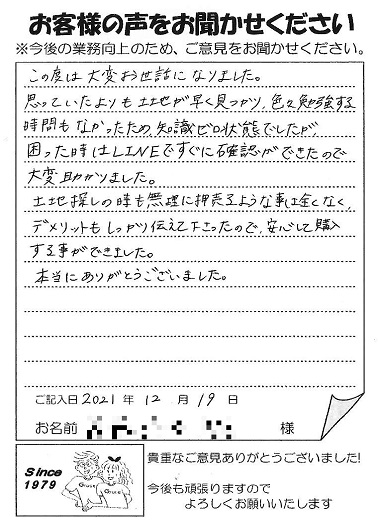 お客様の声をお聞かせください
※今後の業務向上のため、ご意見をお聞かせください。
この度は大変お世話になりました。
思っていたよりも土地が早く見つかり、色々勉強する
時間もなかったため、知識ゼロ状態でしたが、
困った時はLINEですぐに確認ができたので
大変助かりました。
土地探しの時も無理に押売るような事は全くなく、
デメリットもしっかり伝えて下さったので、安心して購入
する事ができました。
本当にありがとうございました。
ご記入日 2021 年 12 月 19 日
お名前 様
Since
1979
貴重なご意見ありがとうございました!
今後も頑張りますので
よろしくお願いいたします